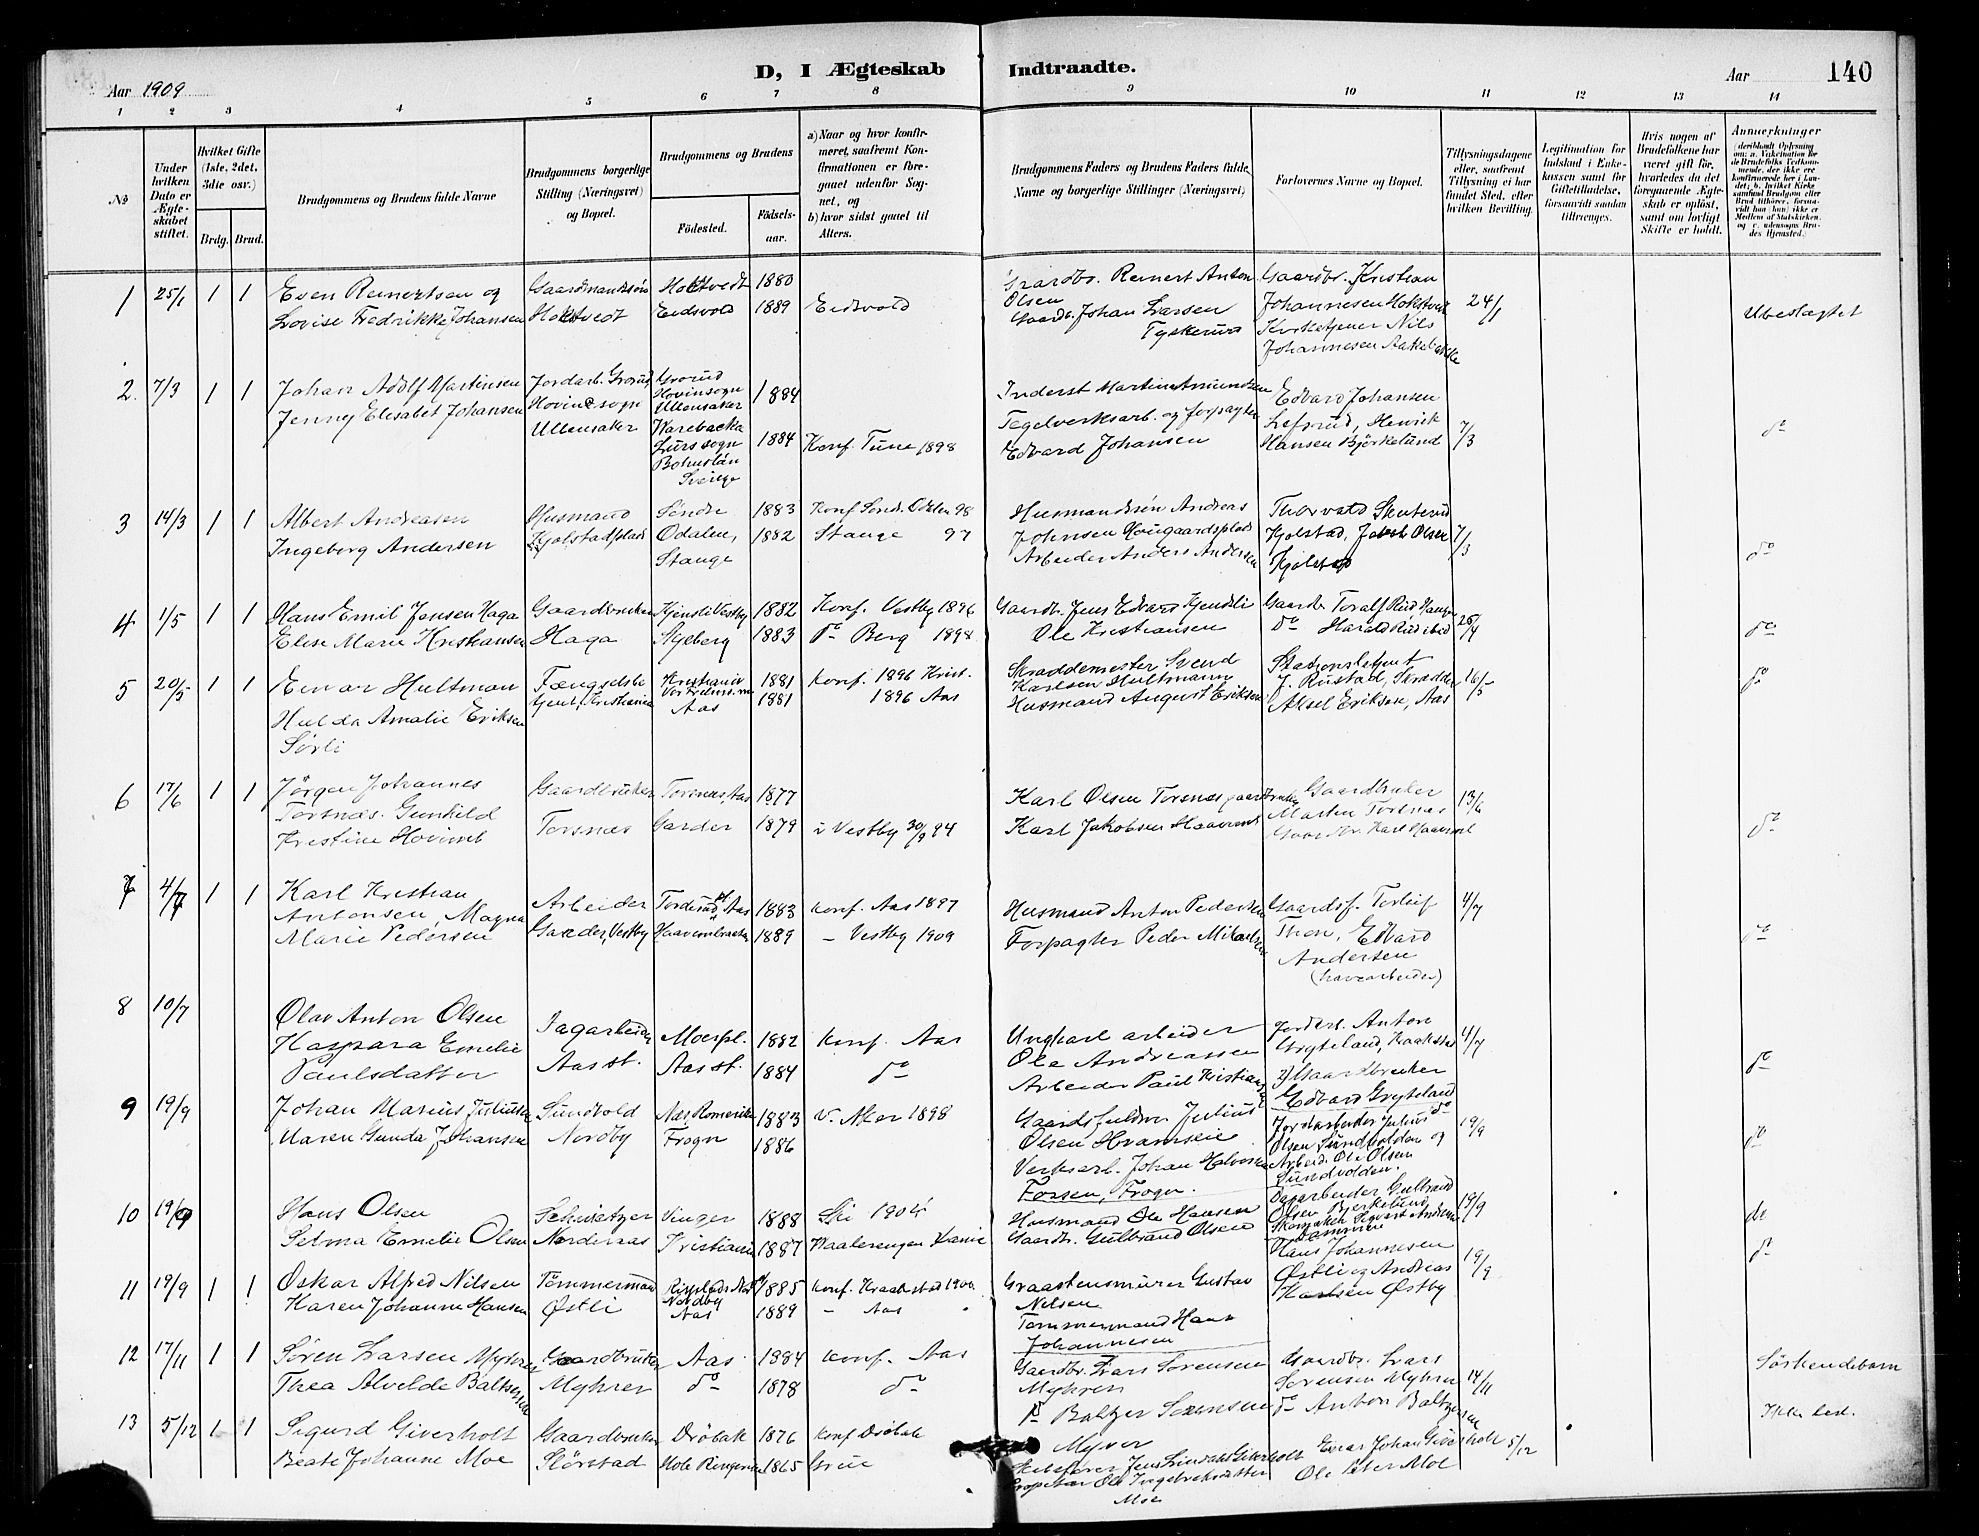 Aar 1909
D, I Ægteskab Indtraadte.
Aar 140
1 2 3 4 5 6 7 8 9 10 11 12 13 14
No
Under hvilken Dato er Ægteskabet stiftet.
Hvilket Gifte (1ste, 2det, 3die osv.)
Brdg. Brud.
Brudgommens og Brudens fulde Navne
Brudgommens borgerlige Stilling (Næringsvei) og Bopæl.
Brudgommens og Brudens
Fødested.
Fødselsaar.
a) Naar og hvor konfirmeret, saafremt Konfirmationen er foregaaet udenfor Sognet, og
b) hvor sidst gaaet til Alters.
Brudgommens Faders og Brudens Faders fulde Navne og borgerlige Stillinger (Næringsvei)
Forlovernes Navne og Bopæl.
Tillysningsdagene eller, saafremt Tillysning ei har fundet Sted, efter hvilken Bevilling.
Legitimation for Indskud i Enkekassen samt for Giftetilladelse, forsaavidt saadan tiltrænges.
Hvis nogen af Brudefolkene har været gift før, hvorledes da det foregaaende Ægteskab er opløst, samt om lovligt Skifte er holdt.
Anmerkninger
1 25/1 1 1
Even Reinertsen og
Lovise Fredrikke Johansen
Gaardmandssøn
Hokstvedt
Hokstvedt 1880
Eidsvold 1889
Eidsvold
Gaardbr. Reinert Anton
Olsen
Gaardb. Johan Larsen
Tyskerud
Gaardbr. Kristian
Johannesen Hokstvedt
Kirketjener Nils
Johannesen Aakebakke
24/1
Ubeslægtet
2. 7/3 1 1
Johan Adolf Martinsen
Jenny Elisabet Johansen
Jordarb. Grorud,
Hovin sogn
Ullensaker
Grorud
Hovinsogn
Ullensaker 1884
Karebacka
Lurs sogn 1884
Bohuslän
Sverige
Konf. Tune 1898
Inderst Martin Amundsen
Tegelverksarb. og forpagter
Edvard Johansen
Edvard Johansen
Lefsrud, Henrik
Hansen Bjørkelund
7/3
do
3 14/3 1 1
Albert Andreasen
Ingeborg Andersen
Husmand
Kjølstadplads
Söndre
Odalen,
Stange
1883
1882
Konf. Sönd. Odalen 98
Stange 97
Husmandssön Andreas
Johnsen Hougaardsplads
Arbeider Anders Andersen
Thorvald Skuterud
Kjølstad, Jakob Olsen
Kjølstad
7/3
do
4 1/5 1 1
Hans Emil Jensen Haga
Elise Marie Kristiansen
Gaardbruker
Haga
Kjensli Vestby 1882
Nyeberg 1883
Konf. Vestby 1896
do Berg 1898
Gaardb. Jens Edvard Kjensli
Ole Kristiansen
Gaardb. Toralf Rud Haugen
do Harald Rud ibid
25/4
do
5 20/5 1 1
Einar Hultman
Hulda Amalie Eriksen
Sørli
Fængselsbe
tjent, Kristiania
Kristiania 1881
Aas 1881
Konf. 1896 Krist.
1896 Aas
Skræddemester Svend
Karlsen Hultmann
Husmand August Eriksen
Stationsbetjent
J. Rustad, Skrædder
Aksel Eriksen, Aas
16/5
do
6 17/6 1 1
Jørgen Johannes
Torsnæs. Gunhild
Kristine Hovind
Gaardbruker
Torsnæs
Torsnæs, Aas 1877
Garder 1879
i Vestby 30/9 94
Karl Olsen Torsnæs gaardbruker
Karl Jakobsen
Gaardbruker
Martin Torsnæs
Gaardbr. Karl
13/6
do
7 4/7 1 1
Karl Kristian
Antonsen, Magna
Marie Pedersen
Arbeider
Garder, Vestby
Torderud, Aas 1883
1889
Konf. Aas 1897
– Vestby 1909
Husmand Anton Pedersen
Forpagter Peder Mikaelsen
Gaardsf. Torleif
Thon, Edvard
Andersen
(havearbeider)
4/7
do
8 10/7
Olav Anton Olsen
Kaspara Emelie
Paulsdatter
Dagarbeider
Aas st.
Moerpl. 1882
Aas st. 1884
Konf. Aas
do
Ungkarl arbeider
Ole Andreassen
Arbeider Paul Kristians
Jordarb. Anton
Gryteland, Kraakstad
2) Gaardbruker
Edvard Gryteland
do
4/7
do
9 19/9
Johan Marius Juliussen
Maren Gunda Johansen
Sundvold
Nordby
Næs Romerike 1883
Frogn 1886
V. Aker 1898
Gaardsfuldm. Julius
Olsen
Verksarb. Johan Halvorsen
Fossen, Frogn.
Jordarbeider Julius
Olsen Sundvolden og
Arbeid. Ole Olsen
Sundvolden.
19/9
do
10 19/9
Hans Olsen
Selma Emelie Olsen
Schweitzer
Norderaas
Vinger 1888
Kristiania 1887
Ski 1904
Kaalerengen Kania
Husmand Ole Hansen
Gaardbr. Gulbrand Olsen
Dagarbeider Gulbrand
Olsen Bjerkelund
19/9
do
do
11 19/9 1 1
Oskar Alfred Nilsen
Karen Johanne Hansen
Tømmermand
Østli
Nordby 1885
Aas 1889
Konf. Kraakstad 1900
– Aas
Graastensmurer Gustav
Nilsen
Tømmermand Hans
Johannesen
Hans Johannesen
Østli og Andreas
Karlsen Østby
19/9
12 17/11 1 1
Søren Larsen Myhrer
Thea Alvilde Baltsersen
Gaardbruker
Myhrer
Aas 1884
do 1878
Konf. Aas
do
Gaardbr. Lars Sørensen
Myhrer
do Baltzer Sørensen
Myrer
Gaardbr. Lars
Sørensen Myhrer
do Anton Baltzersen
14/11
Søskendebarn
13 5/12 1 1
Sigurd Giverholt
Beate Johanne Moe
Gaardbruker
Slørstad
Drøbak 1876
Hole Ringerike 1865
Konf Drøbak
Grue
Skibsfører Jens Giverholt
Proprietær Ole Ingebrektsen
Moe
Einar Johan Giverholt
Ole Peter Moe
5/12
Ikke besl.